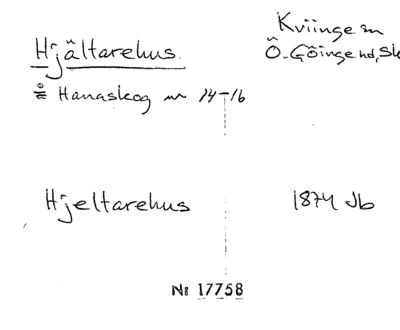 Hjältarehus.
Kviinge sn
Ö. Göinge hd, Sk
i Hanaskog nr 14-16
Hjeltarehus
1874 Jb
Nr 17758